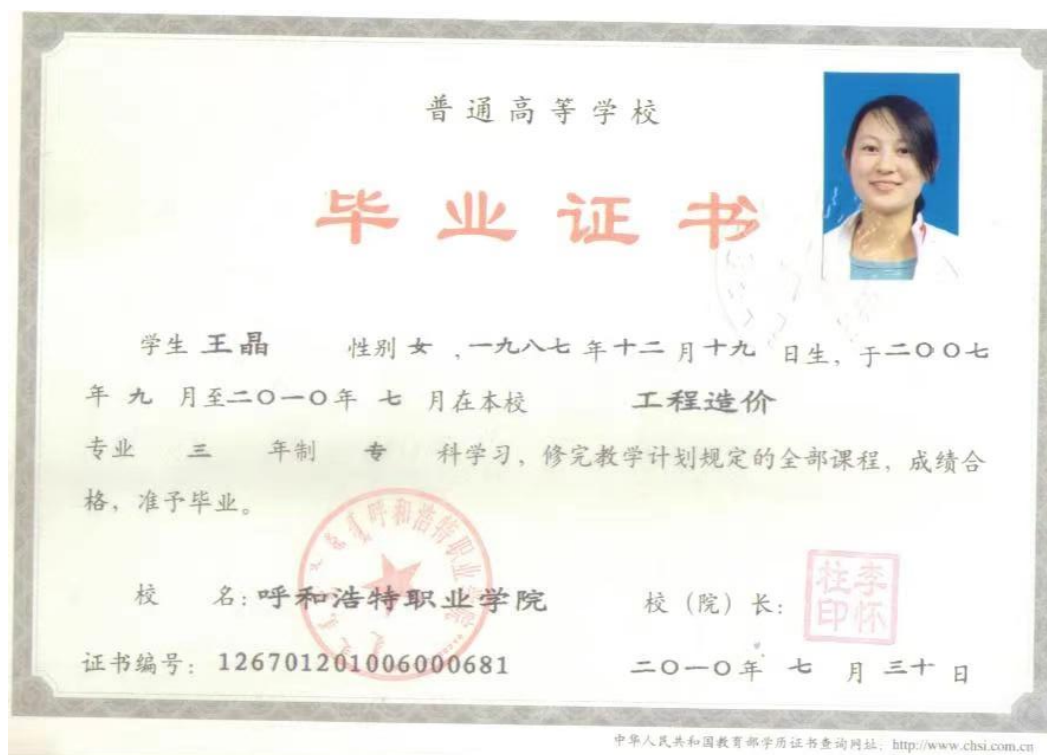 普通高等学校
毕业证书
学生 王晶 性别 女 ，一九八七 年 十二 月 十九 日生，于二〇〇七
年 九 月至二〇一〇年 七 月在本校 工程造价
专业 三 年制 专 科学习，修完教学计划规定的全部课程，成绩合
格，准予毕业。
呼和浩特职业学院
校 名：呼和浩特职业学院 校（院）长：
李怀
柱印
证书编号：126701201006000681 二〇一〇年 七 月 三十 日
中华人民共和国教育部学历证书查询网址：http://www.chsi.com.cn